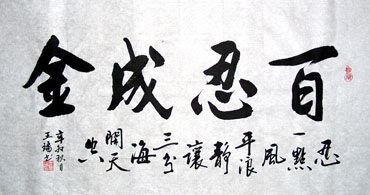 百忍成金
忍
一點
風
平浪
靜
讓
三分
海
闊天
空
辛卯秋
王